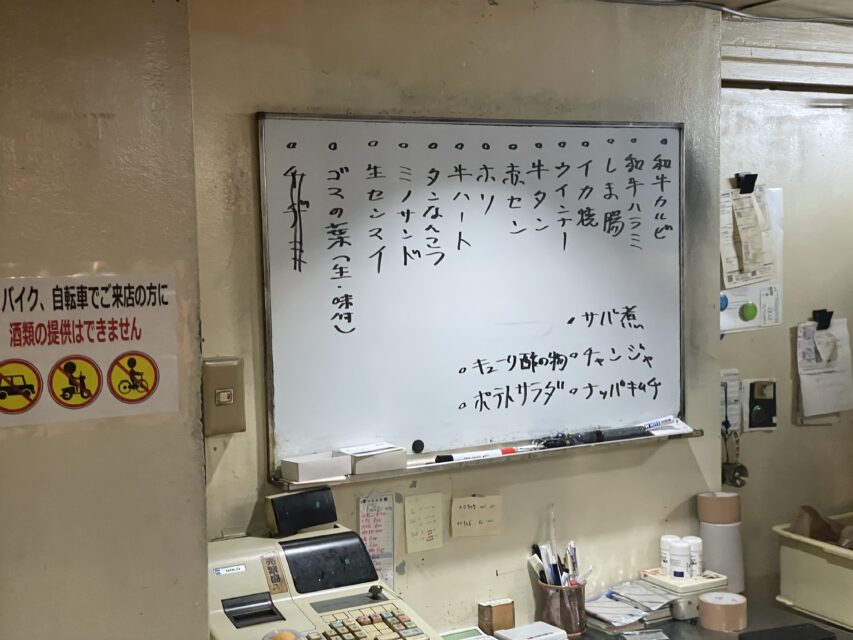 バイク、自転車でご来店の方に
酒類の提供はできません
和牛カルビ
和牛ハラミ
しま腸
イカ焼
ウインナー
牛タン
赤セン
ホソ
牛ハート
タンなべラ
ミノサンド
生センマイ
ゴマの葉(生・味付)
サバ煮
キューリ酢の物
チャンジャ
ポテトサラダ
ナッパキムチ